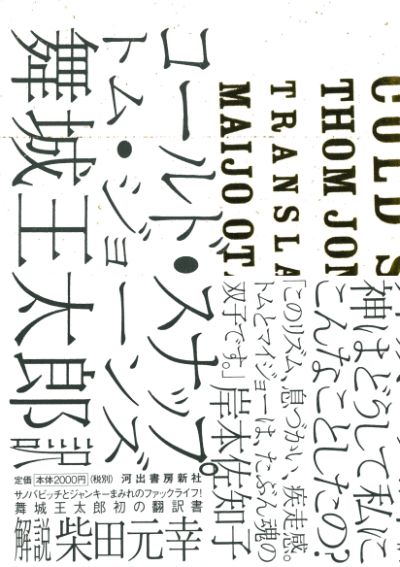 COLD S
THOM JON
TRANSLA
MAIJO OT
コールド・スナップ。
トム・ジョーンズ
舞城王太郎 訳
神はどうして私に
こんなことしたの?
「このリズム、息づかい、疾走感。
トムとマイジョーは、たぶん魂の
双子です。」岸本佐知子
定価 本体2000円 (税別) 河出書房新社
サノバビッチとジャンキーまみれのファックライフ!
舞城王太郎初の翻訳書
解説 柴田元幸